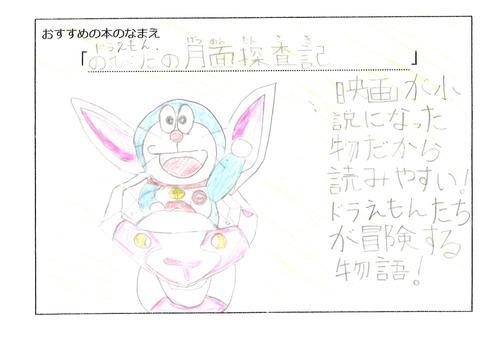 おすすめの本のなまえ
ドラえもん.
「のび太の月面探査記」
げつめんたんさき
映画が小
説になった
物だから
読みやすい!
ドラえもんたち
が冒険する
物語!